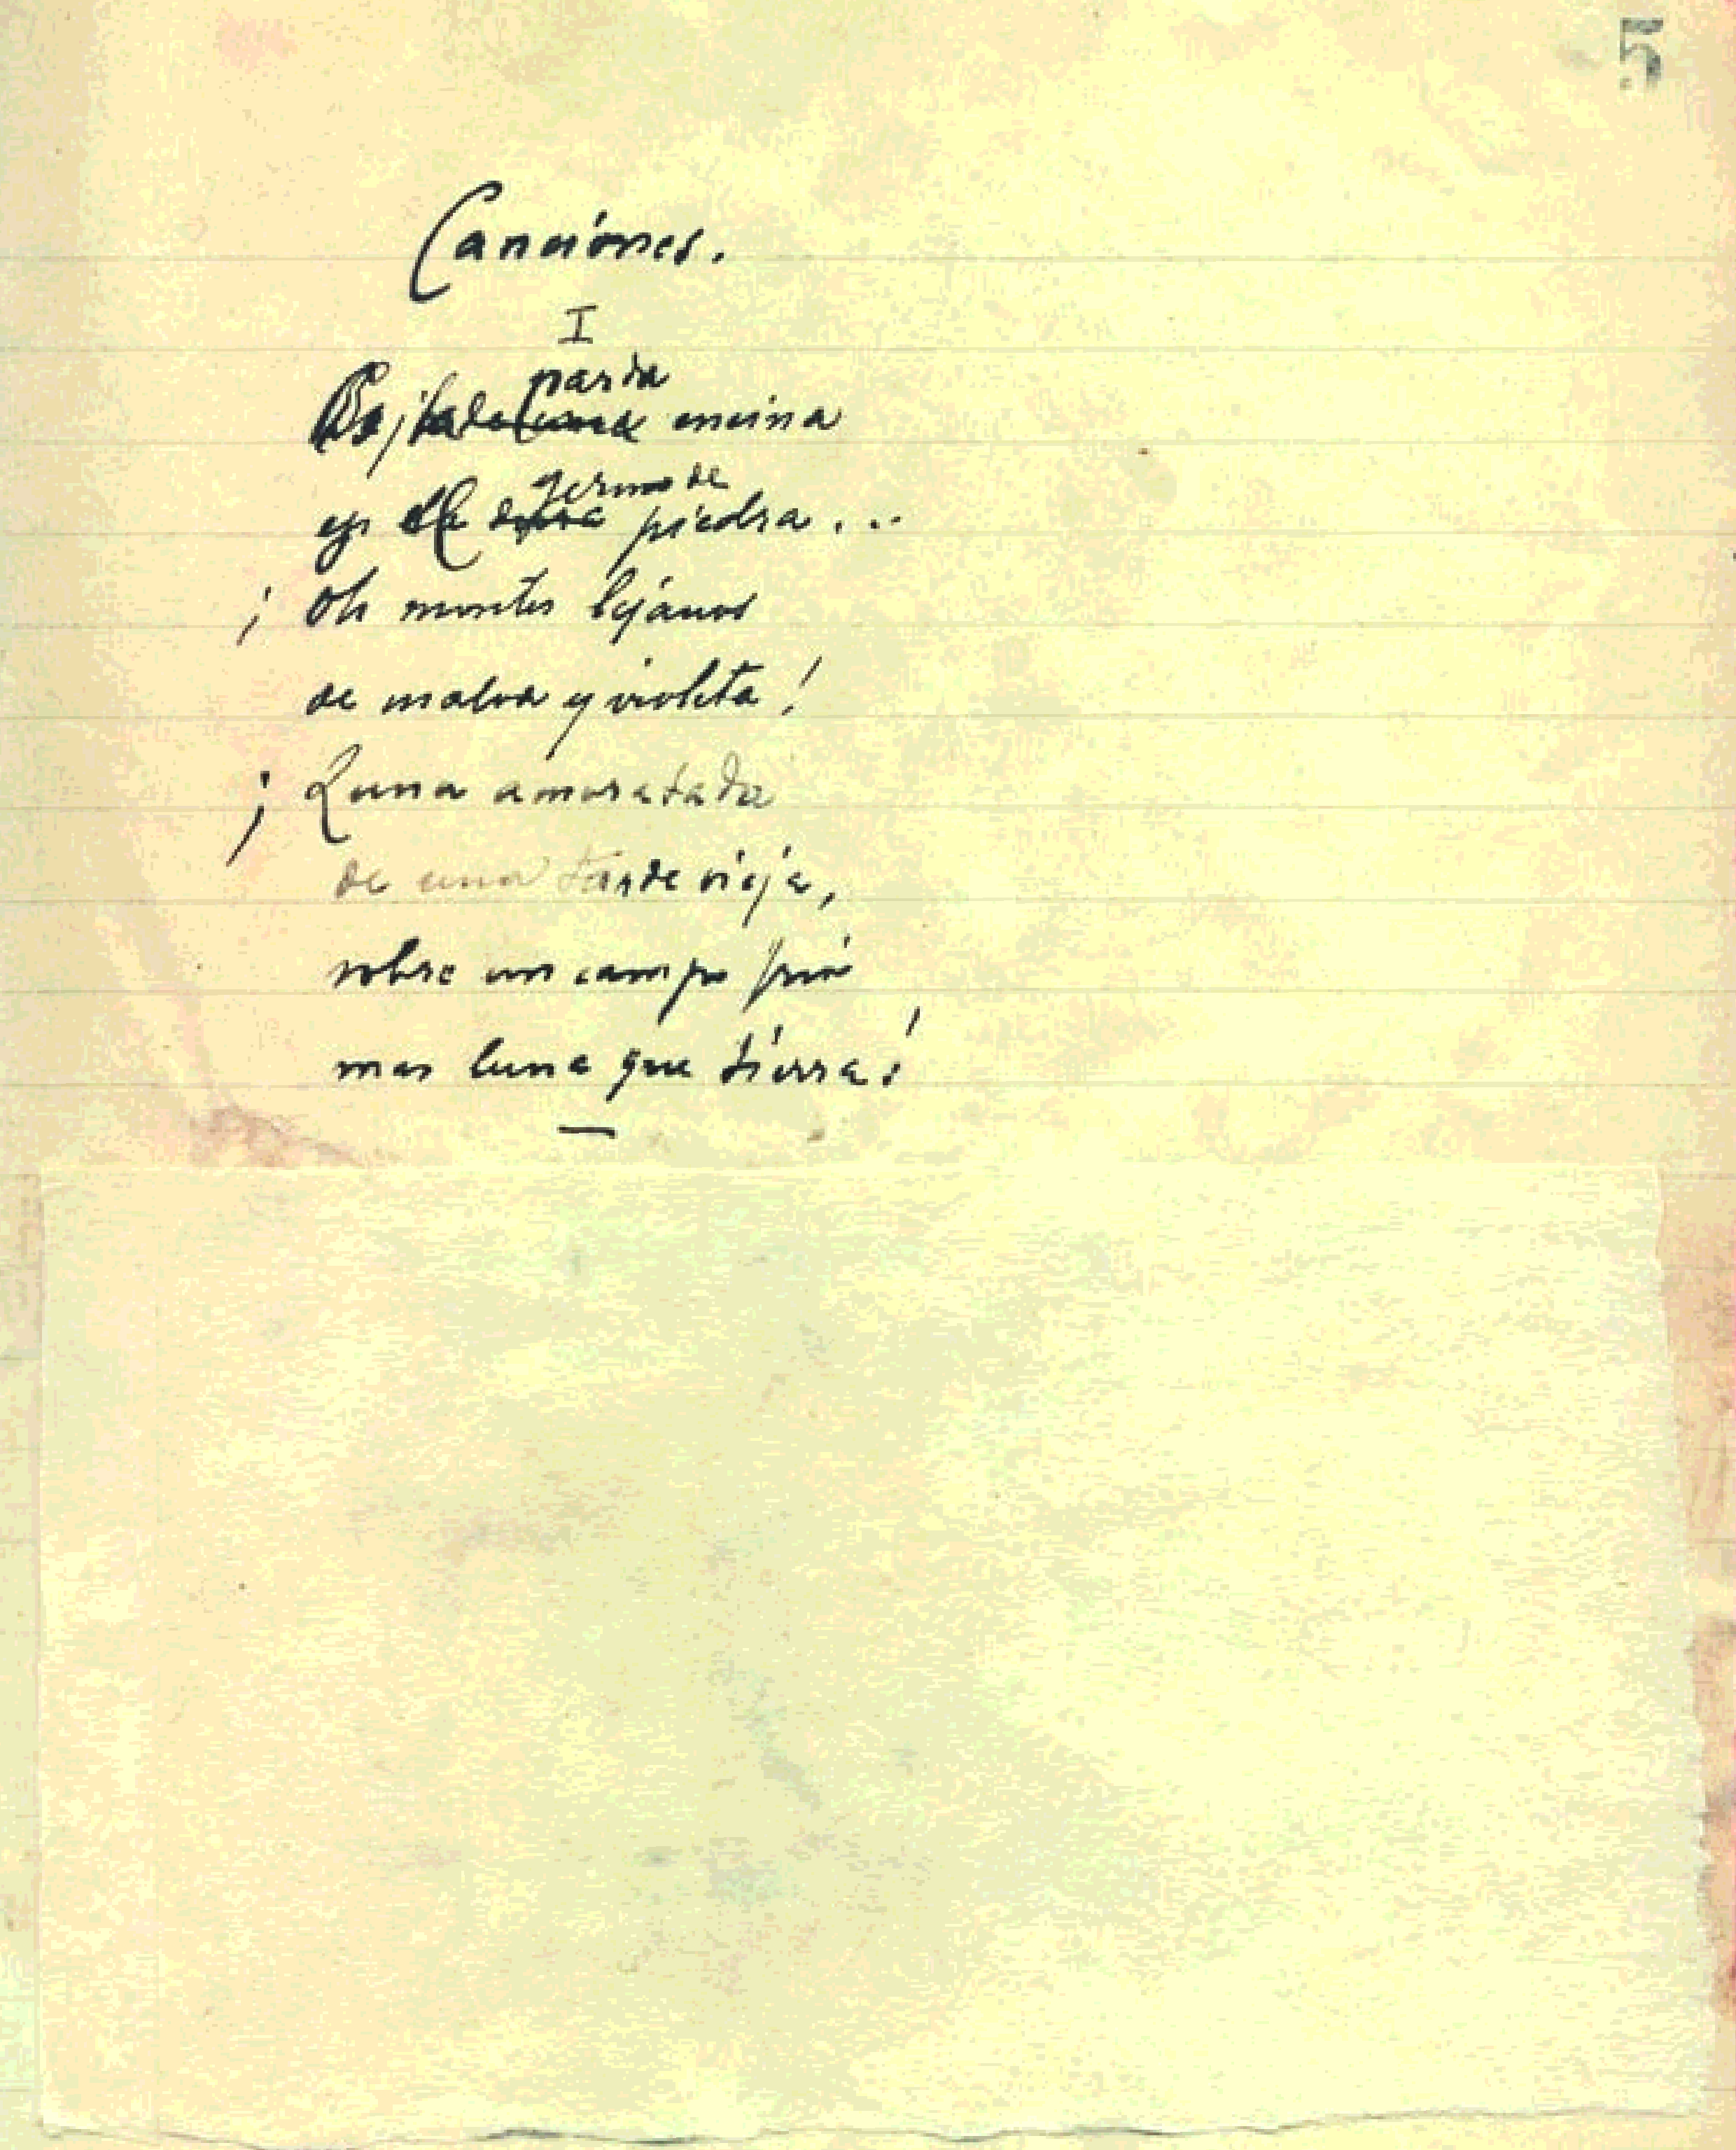 5
Canciones.
I
parda
encina
yermo de
piedra...
¡Oh montes lejanos
de malva y violeta!
¡Luna amoratada
de una tarde vieja,
sobre un campo frio
mas luna que tierra!